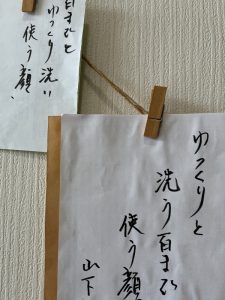 百までと
ゆっくり洗い
使う顔、
ゆっくりと
洗う百まで
使う顔
山下